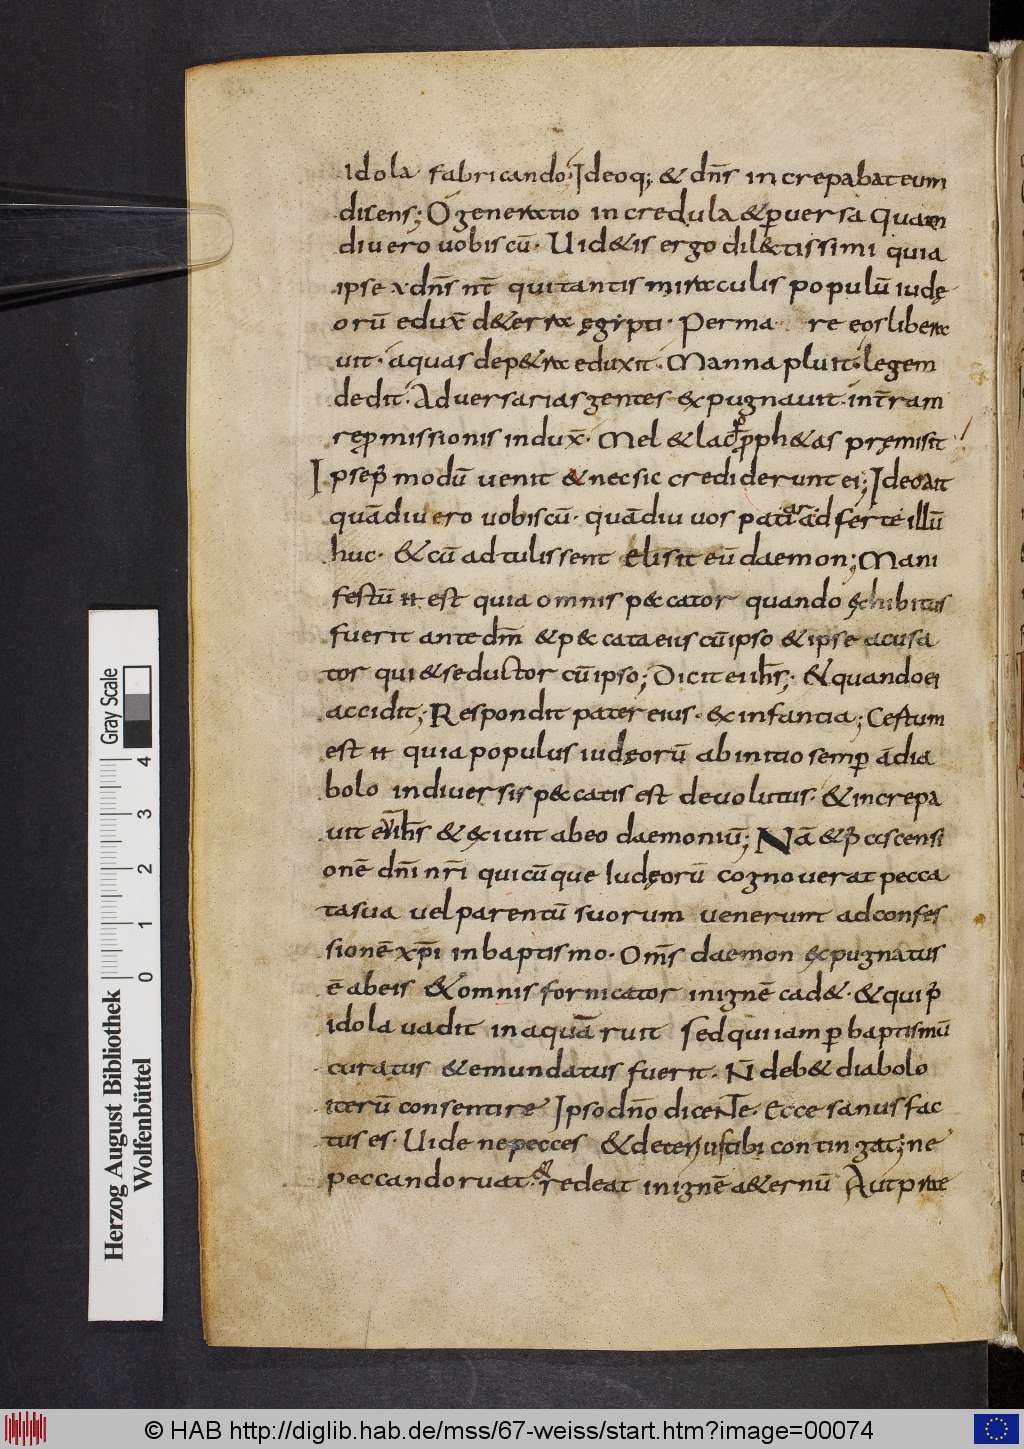 idola fabricando. Ideoq; & dn̄s increpabat eum
dicens; O generatio incredula & ꝑuersa Quam
diu ero uobiscū. Uid&is ergo dil&tissimi quia
ipse xdn̄s nt̄ qui tantis miraculis populū iudę
orū edux̄ d&erra ęgipti. Per ma re eos libera
uit. aquas dep&ra eduxit. Manna pluit. legem
dedit. Aduersarias gentes expugnauit. int̄ram
reꝓmissionis indux̄. Mel & lac ꝓph&as pręmisit
Ipse p̄ modū uenit & nec sic crediderunt ei; Ideo ait
quādiu ero uobiscū. quādiu uos patiar adferte illū
huc. & cū adtulissent elisit eū daemon; Mani
festū H est quia omnis peccator quando exhibitus
fuerit ante dm̄ & peccata eius cū ipso & ipse acusa
tor qui & seductor cū ipso; Dicit ei ih̄s; & quando ei
accidit; Respondit pater eius. ex infantia; Cestum
est H quia populus iudęorū ab initio semꝑ a dia
bolo in diuersis peccatis est deuolutus. & increpa
uit eū ih̄s & exiuit ab eo daemoniū; Nā & p̄ ascensi
onē dn̄i nr̄i quicūque Iudęorū cognouerat pecca
ta sua uel parentū suorum uenerunt ad confes
sionē xp̄i in baptismo. Omīs daemon expugnatus
ē ab eis & omnis fornicator in ignē cad&. & qui p̄
idola uadit in aquā ruit sed qui iam ꝑ baptismū
curatus & emundatus fuerit. N̄ deb& diabolo
iterū consentire Ipso dn̄o dicente. Ecce sanus fac
tus es. Uide ne pecces & deterius tibi contingat; ne
peccando ruat. & redeat in ignē a&ernū Aut prae
Herzog August Bibliothek
Wolfenbüttel
0 1 2 3 4
Gray Scale
© HAB http://diglib.hab.de/mss/67-weiss/start.htm?image=00074